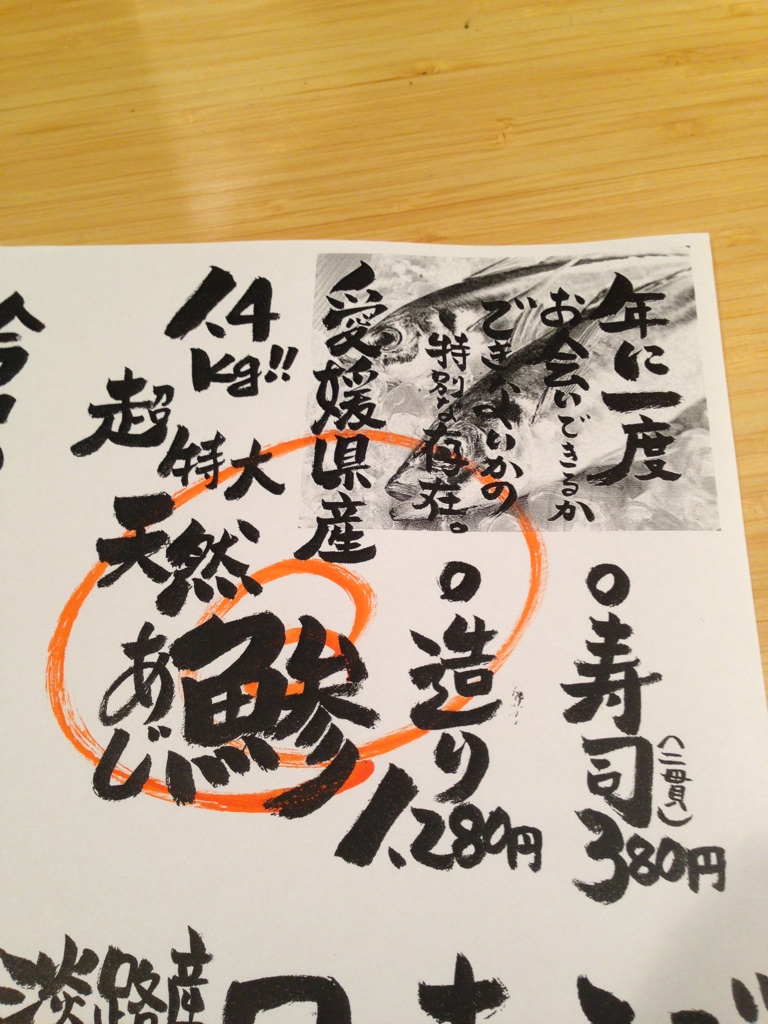 年に一度
お会いできるか
できないかの
特別な存在。
○寿司
(二貫)
380円
○造り
1,280円
愛媛県産
1.4
kg!!
超
特大
天然
鯵
あじ
淡路産